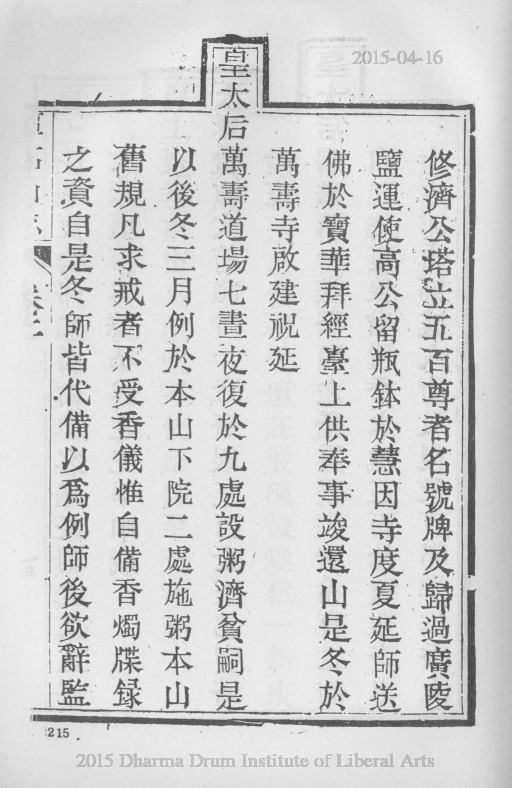 2015-04-16
修濟公塔立五百尊者名號牌及歸過廣陵
鹽運使高公留瓶鉢於慧因寺度夏延師送
佛於寶華拜經臺上供奉事竣還山是冬於
萬壽寺啟建祝延
皇太后萬壽道場七晝夜復於九處設粥濟貧嗣是
以後冬三月例於本山下院二處施粥本山
舊規凡求戒者不受香儀惟自備香燭牒録
之資自是冬師皆代備以爲例師後欲辭監
215
2015 Dharma Drum Institute of Liberal Arts